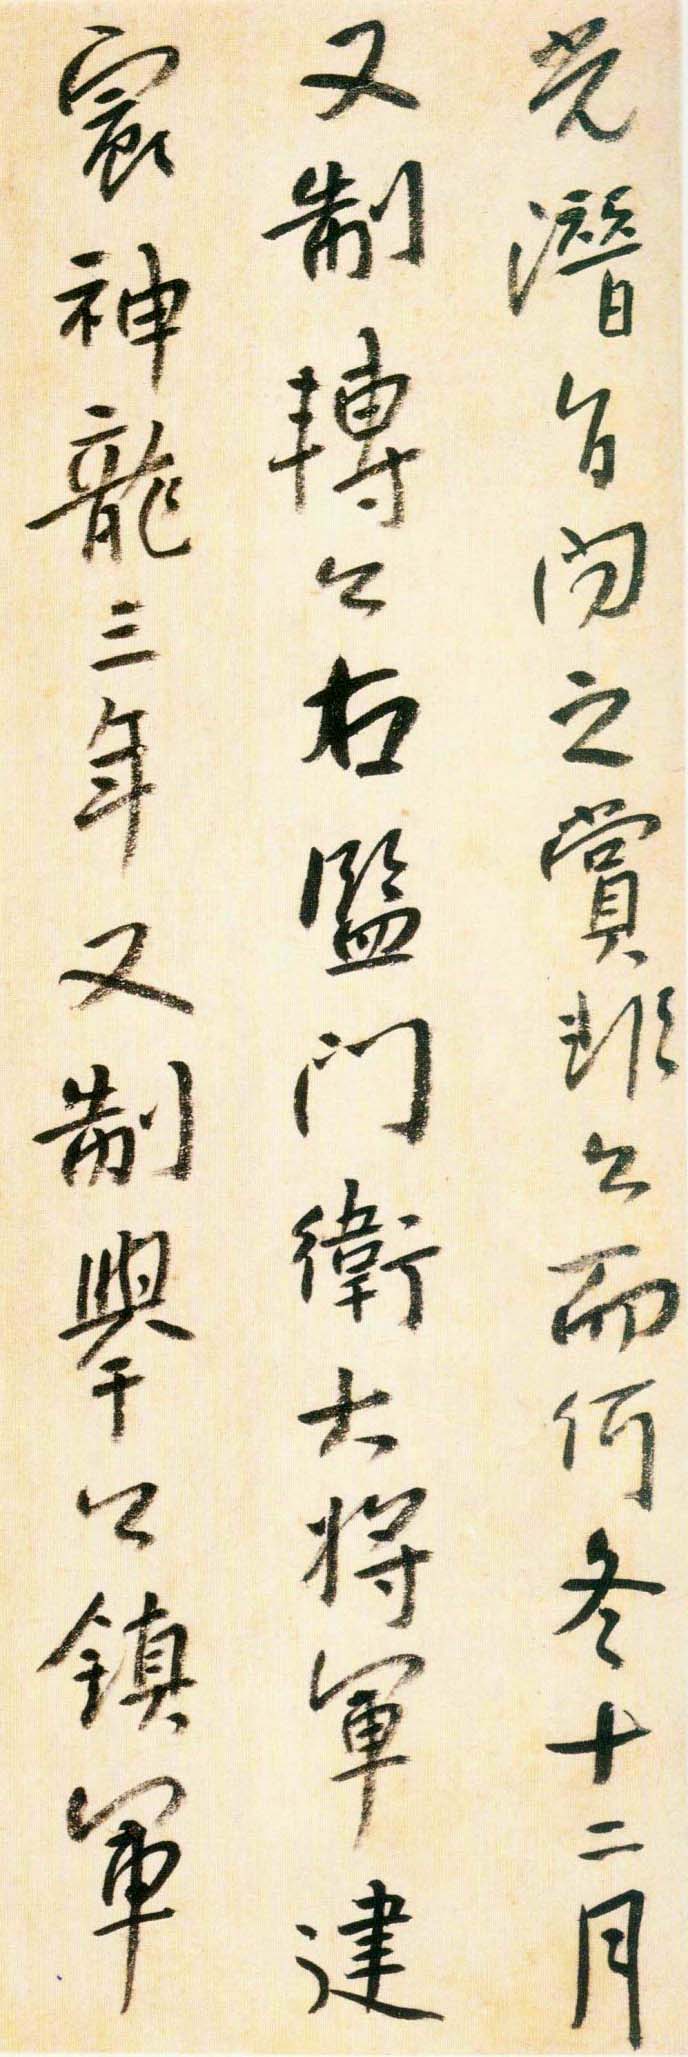 光潛旨問之賞非公而何冬十二月
又制轉公右監門衛大將軍建
宸神龍三年又制舉公鎮軍